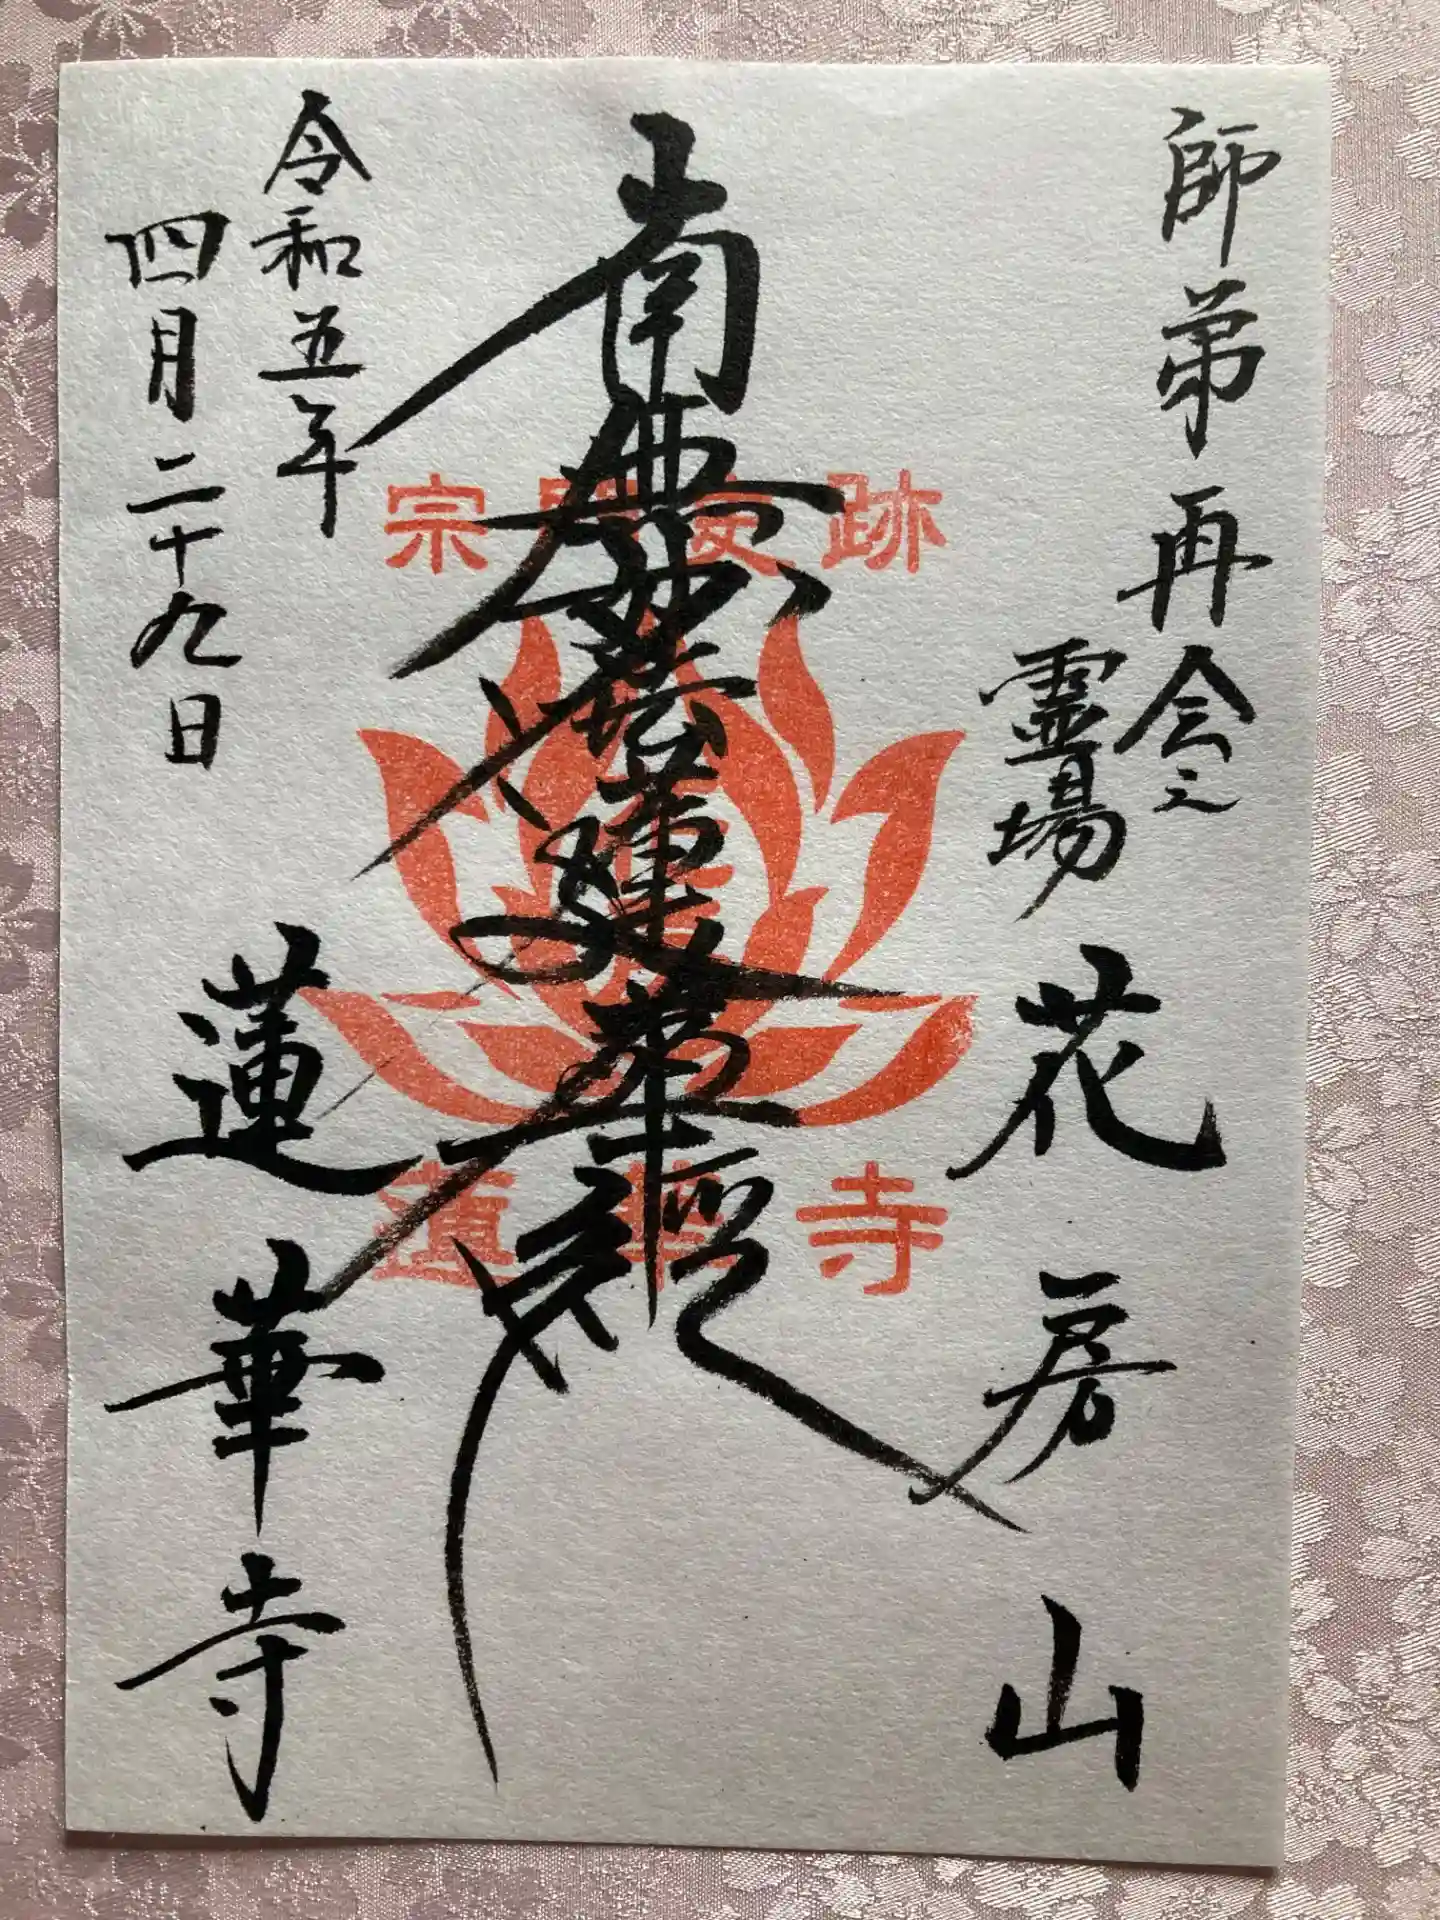 師弟再会之
霊場
花房山
南無妙法蓮華経
令和五年
四月二十九日
蓮華寺
宗門史跡
蓮華寺